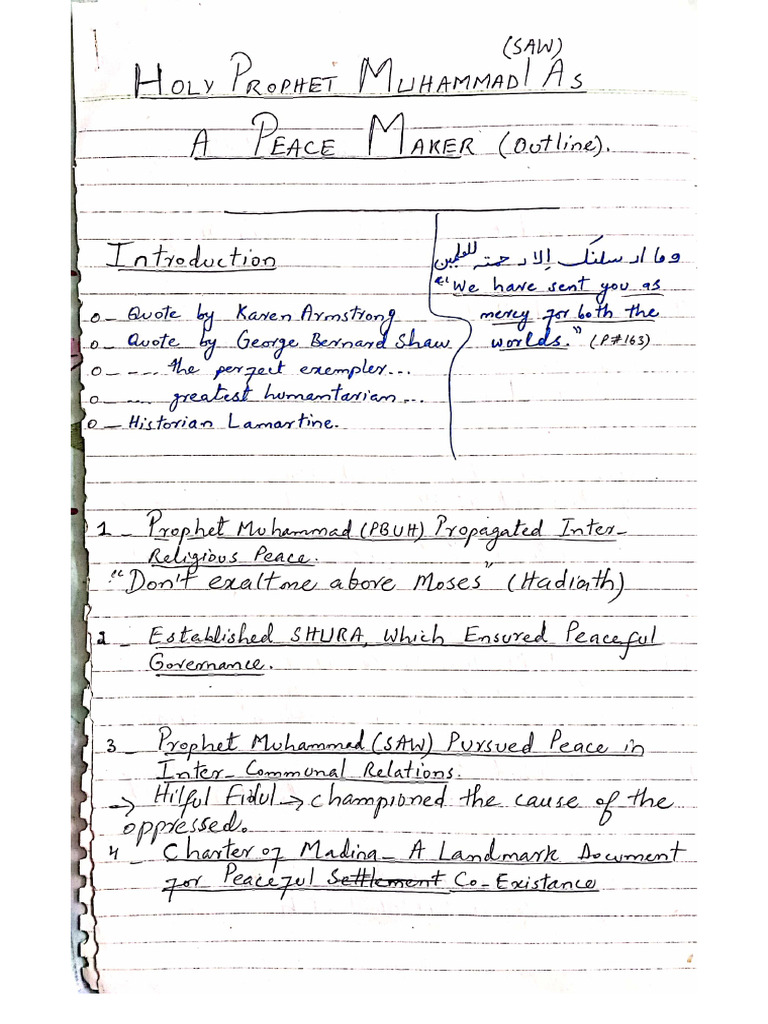 (SAW)
HOLY PROPHET MUHAMMAD AS
A PEACE MAKER (Outline).
Introduction
o- Quote by Karen Armstrong
o- Quote by George Bernard Shaw
o- .... the perfect exempler...
o- .... greatest humanitarian...
o- Historian Lamartine.
وما ارسلنك إلا رحمته للعلمين
"We have sent you as
mercy for both the
worlds." (P#163)
1 - Prophet Muhammad (PBUH) Propagated Inter-
Religious Peace.
"Don't exalt me above Moses" (Hadiath)
2 - Established SHURA, Which Ensured Peaceful
Governance.
3 - Prophet Muhammad (SAW) Pursued Peace in
Inter-Communal Relations.
→ Hilful Fidul → championed the cause of the
oppressed.
4 - Charter of Madina - A Landmark Document
for Peaceful Settlement Co-Existance